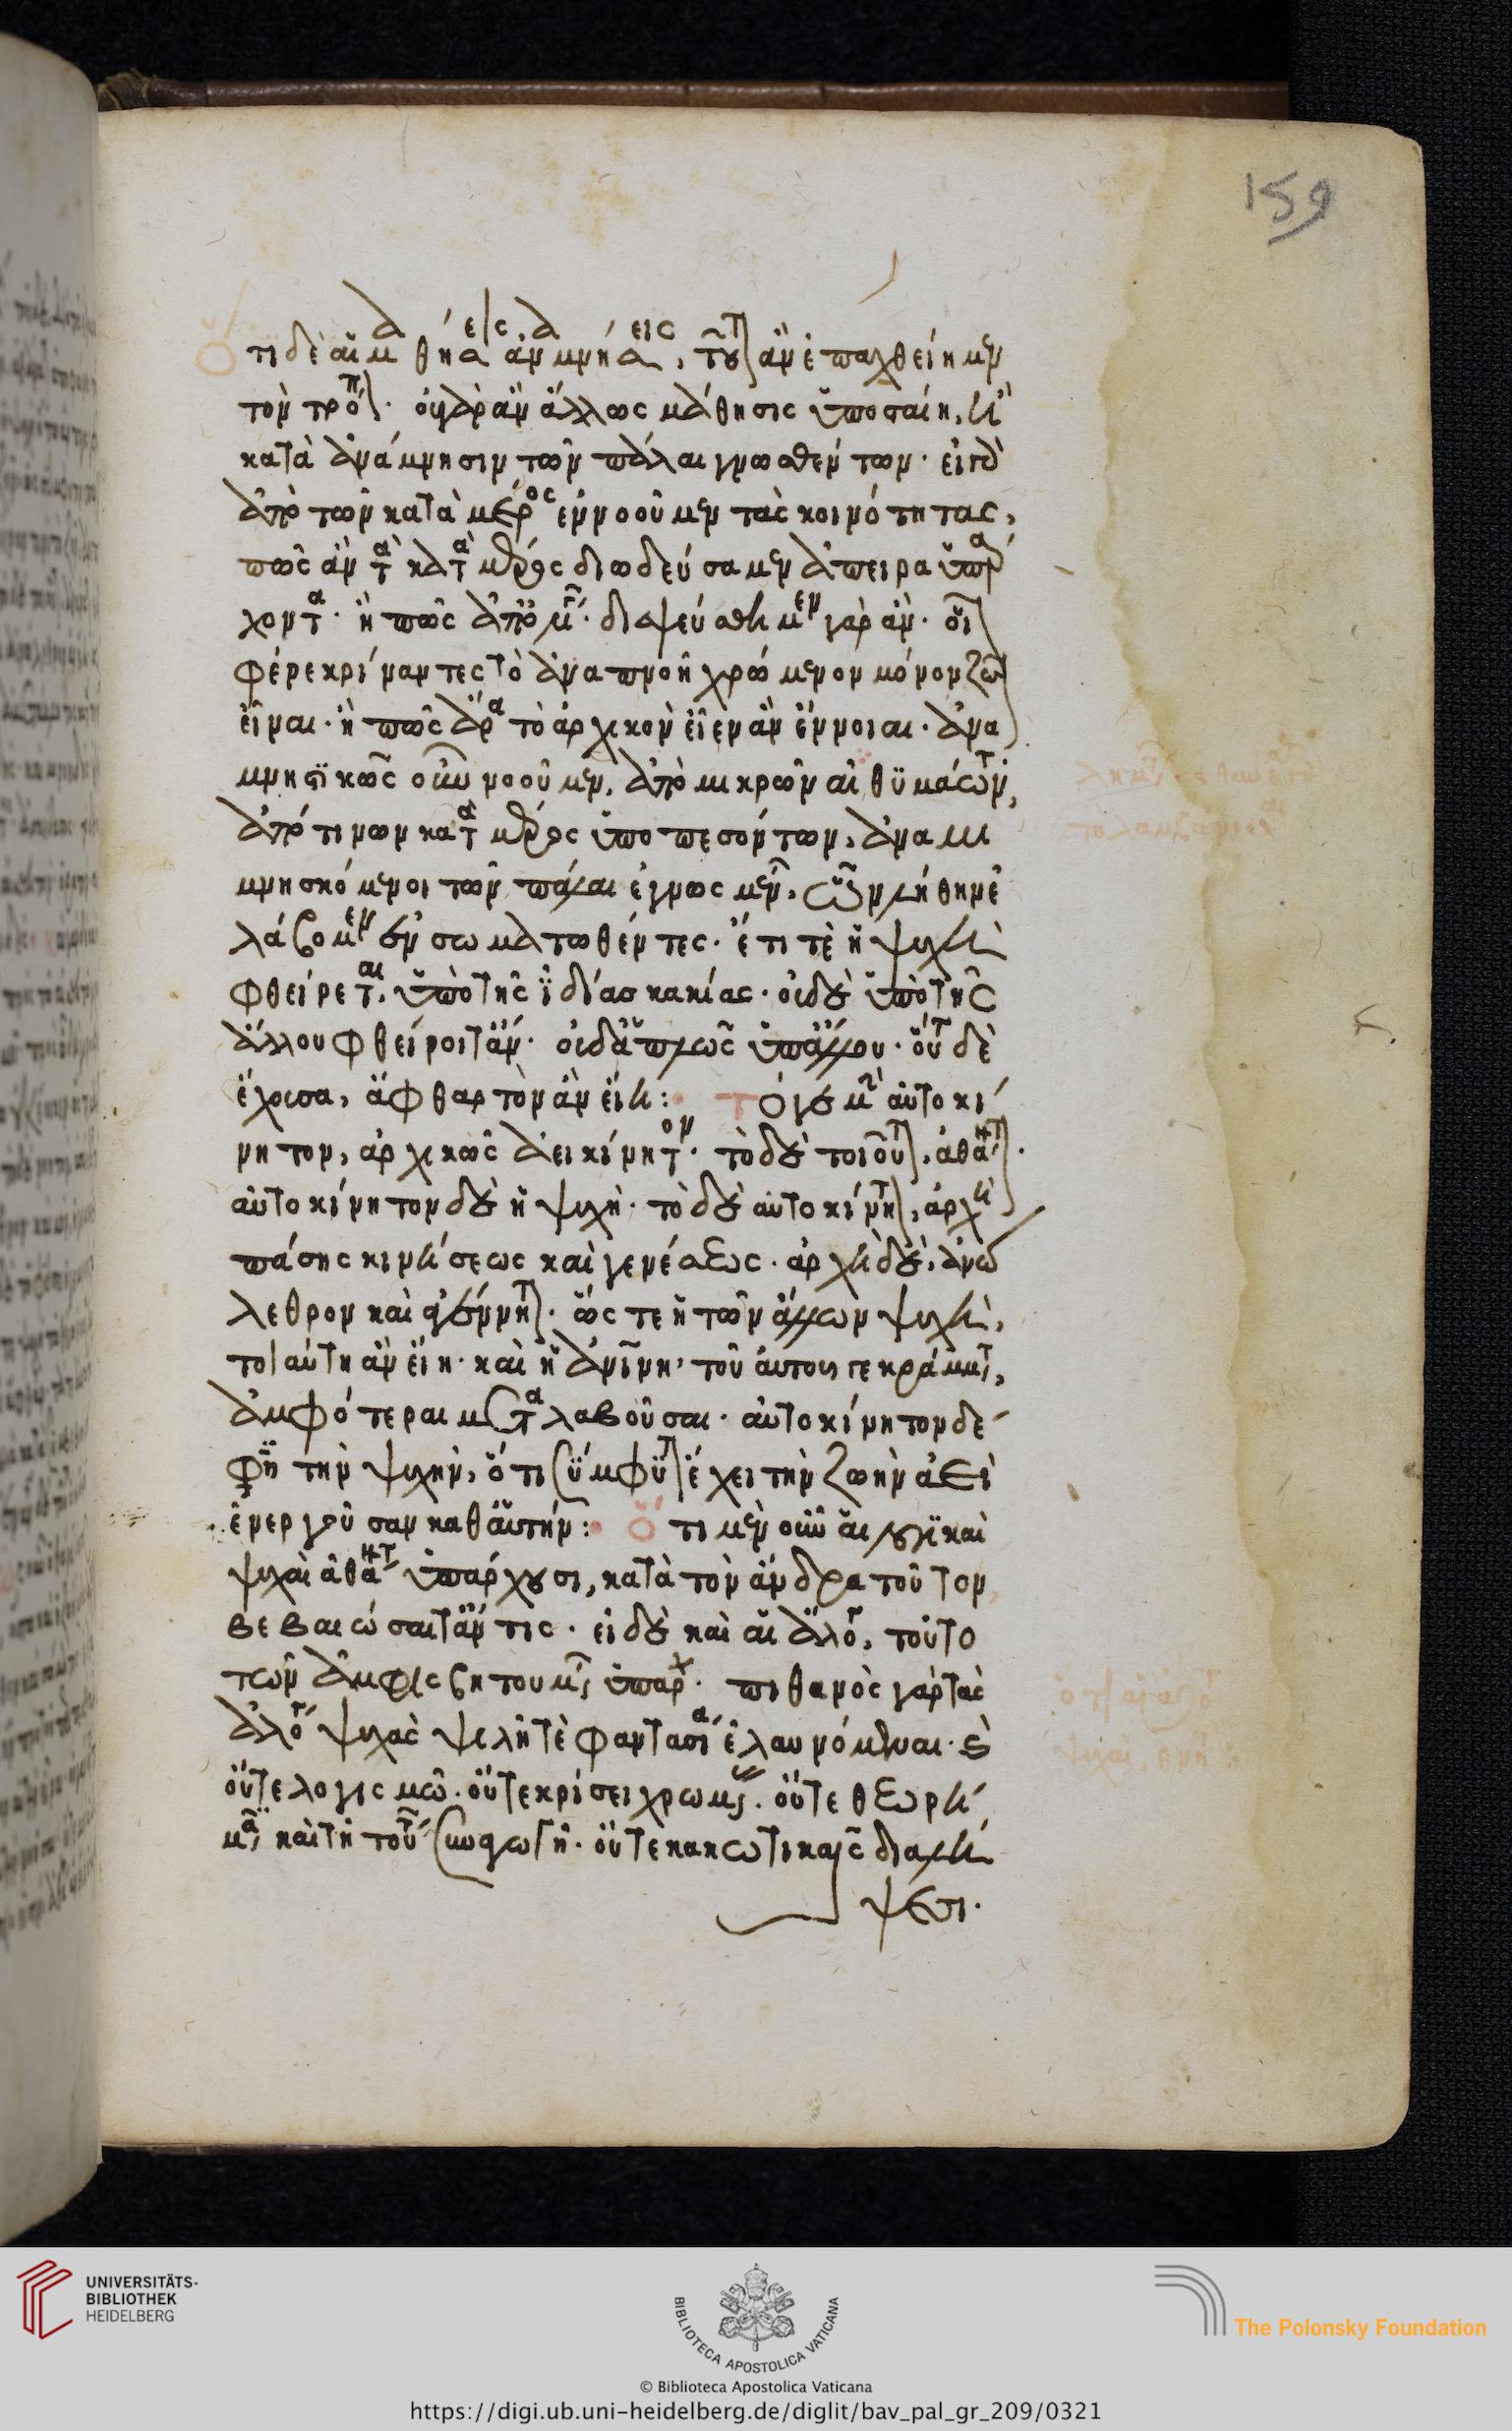 159
Ὅτι δὲ αἱ μαθήσεις ἀναμνήσεις, τοῦτον ἂν ἐπαχθείημεν
τὸν τρόπον. οὐ γὰρ ἂν ἄλλως μάθησις ὑποσταίη, ἢ
κατὰ ἀνάμνησιν τῶν πάλαι γνωσθέντων. εἰ γὰρ
ἀπὸ τῶν κατὰ μέρος ἐννοοῦμεν τὰς κοινότητας,
πῶς ἂν τὰ κατὰ μέρος διωδεύσαμεν ἄπειρα ὑπάρ
χοντα. ἢ πῶς ἀπὸ . διεψεύσθημεν γὰρ ἄν. οἷον
φέρε κρίναντες τὸ ἀναπνοῇ χρώμενον μόνον ζῶον
εἶναι. ἢ πῶς ἄρα τὸ ἀρχικὸν εἶεν ἂν ἔννοιαι. ἀνα
μνηστικῶς οὖν νοοῦμεν, ἀπὸ μικρῶν αἰθυγμάτων,
ἀπό τινων κατὰ μέρος ὑποπεσόντων, ἀναμι
μνησκόμενοι τῶν πάλαι ἐγνωσμένων, ὧν λήθην ἐ
λάβομεν ἐνσωματωθέντες. ἔτι τὲ ἡ ψυχὴ
φθείρεται, ὑπὸ τῆς ἰδίας κακίας. οὐδὲ ὑπὸ τῆς
ἄλλου φθείροιτ' ἄν. οὐδ' ἁπλῶς ὑπ' ἄλλου. οὕτω δὲ
ἔχουσα, ἄφθαρτον ἂν εἴη: Τό γε μὴν αὐτοκί
νητον, ἀρχικῶς ἀεικίνητον. τὸ δὲ τοιοῦτον, ἀθάνατον.
αὐτοκίνητον δὲ ἡ ψυχή. τὸ δὲ αὐτοκίνητον, ἀρχὴ
πάσης κινήσεως καὶ γενέσεως. ἀρχὴ δὲ, ἀνώ
λεθρον καὶ ἀγέννητον. ὥστε ἡ τῶν ἄλλων ψυχὴ,
τοιαύτη ἂν εἴη. καὶ ἡ ἀνθρωπίνη, τοῦ αὐτοῦ γε κράματος,
ἀμφότεραι μεταλαβοῦσαι. αὐτοκίνητον δέ
φησι τὴν ψυχὴν, ὅτι σύμφυτον ἔχει τὴν ζωὴν ἀεὶ
ἐνεργοῦσαν καθ' αὑτήν: Ὅτι μὲν οὖν αἱ λογικαὶ
ψυχαὶ ἀθάνατοι ὑπάρχουσι, κατὰ τὸν ἄνδρα τοῦτον
βεβαιώσαιτ' ἄν τις. εἰ δὲ καὶ αἱ ἄλογοι, τοῦτο
τῶν ἀμφισβητουμένων ὑπάρχει. πιθανὸς γὰρ τὰς
ἀλόγους ψυχὰς ψιλῇ τὲ φαντασίᾳ ἐλαυνόμεναι. καὶ
οὔτε λογισμῷ. οὔτε κρίσει χρωμένας. οὔτε θεωρή
μασι καὶ τῇ τούτων συναγωγῇ. οὔτε καθολικαῖς διαλή
ψεσι.
UNIVERSITÄTS-
BIBLIOTHEK
HEIDELBERG
BIBLIOTECA APOSTOLICA VATICANA
© Biblioteca Apostolica Vaticana
The Polonsky Foundation
https://digi.ub.uni-heidelberg.de/diglit/bav_pal_gr_209/0321